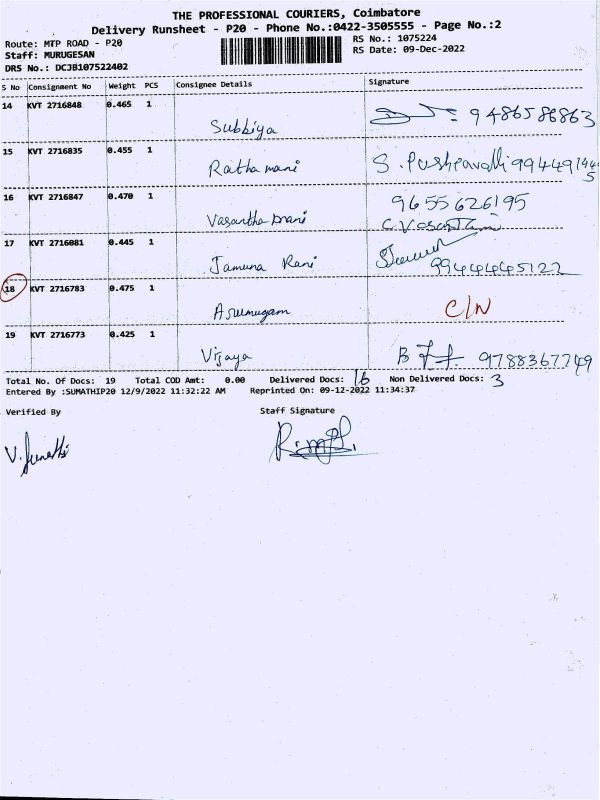 THE PROFESSIONAL COURIERS, Coimbatore
Delivery Runsheet - P20 - Phone No.:0422-3505555 - Page No.:2
Route: MTP ROAD - P20 RS No.: 1075224
Staff: MURUGESAN RS Date: 09-Dec-2022
DRS No.: DCJB107522402
S No Consignment No Weight PCS Consignee Details Signature
14 KVT 2716848 0.465 1
Subbiya 9486586863
15 KVT 2716835 0.455 1
Ratha mani S. Pushpavalli
16 KVT 2716847 0.470 1 9655626195
Vasantha mani C. Vasantha
17 KVT 2716081 0.445 1
Jamuna Rani
18 KVT 2716783 0.475 1
Arumugam C/N
19 KVT 2716773 0.425 1
Vijaya 9788367749
Total No. Of Docs: 19 Total COD Amt: 0.00 Delivered Docs: 16 Non Delivered Docs: 3
Entered By :SUMATHIP20 12/9/2022 11:32:22 AM Reprinted On: 09-12-2022 11:34:37
Verified By Staff Signature